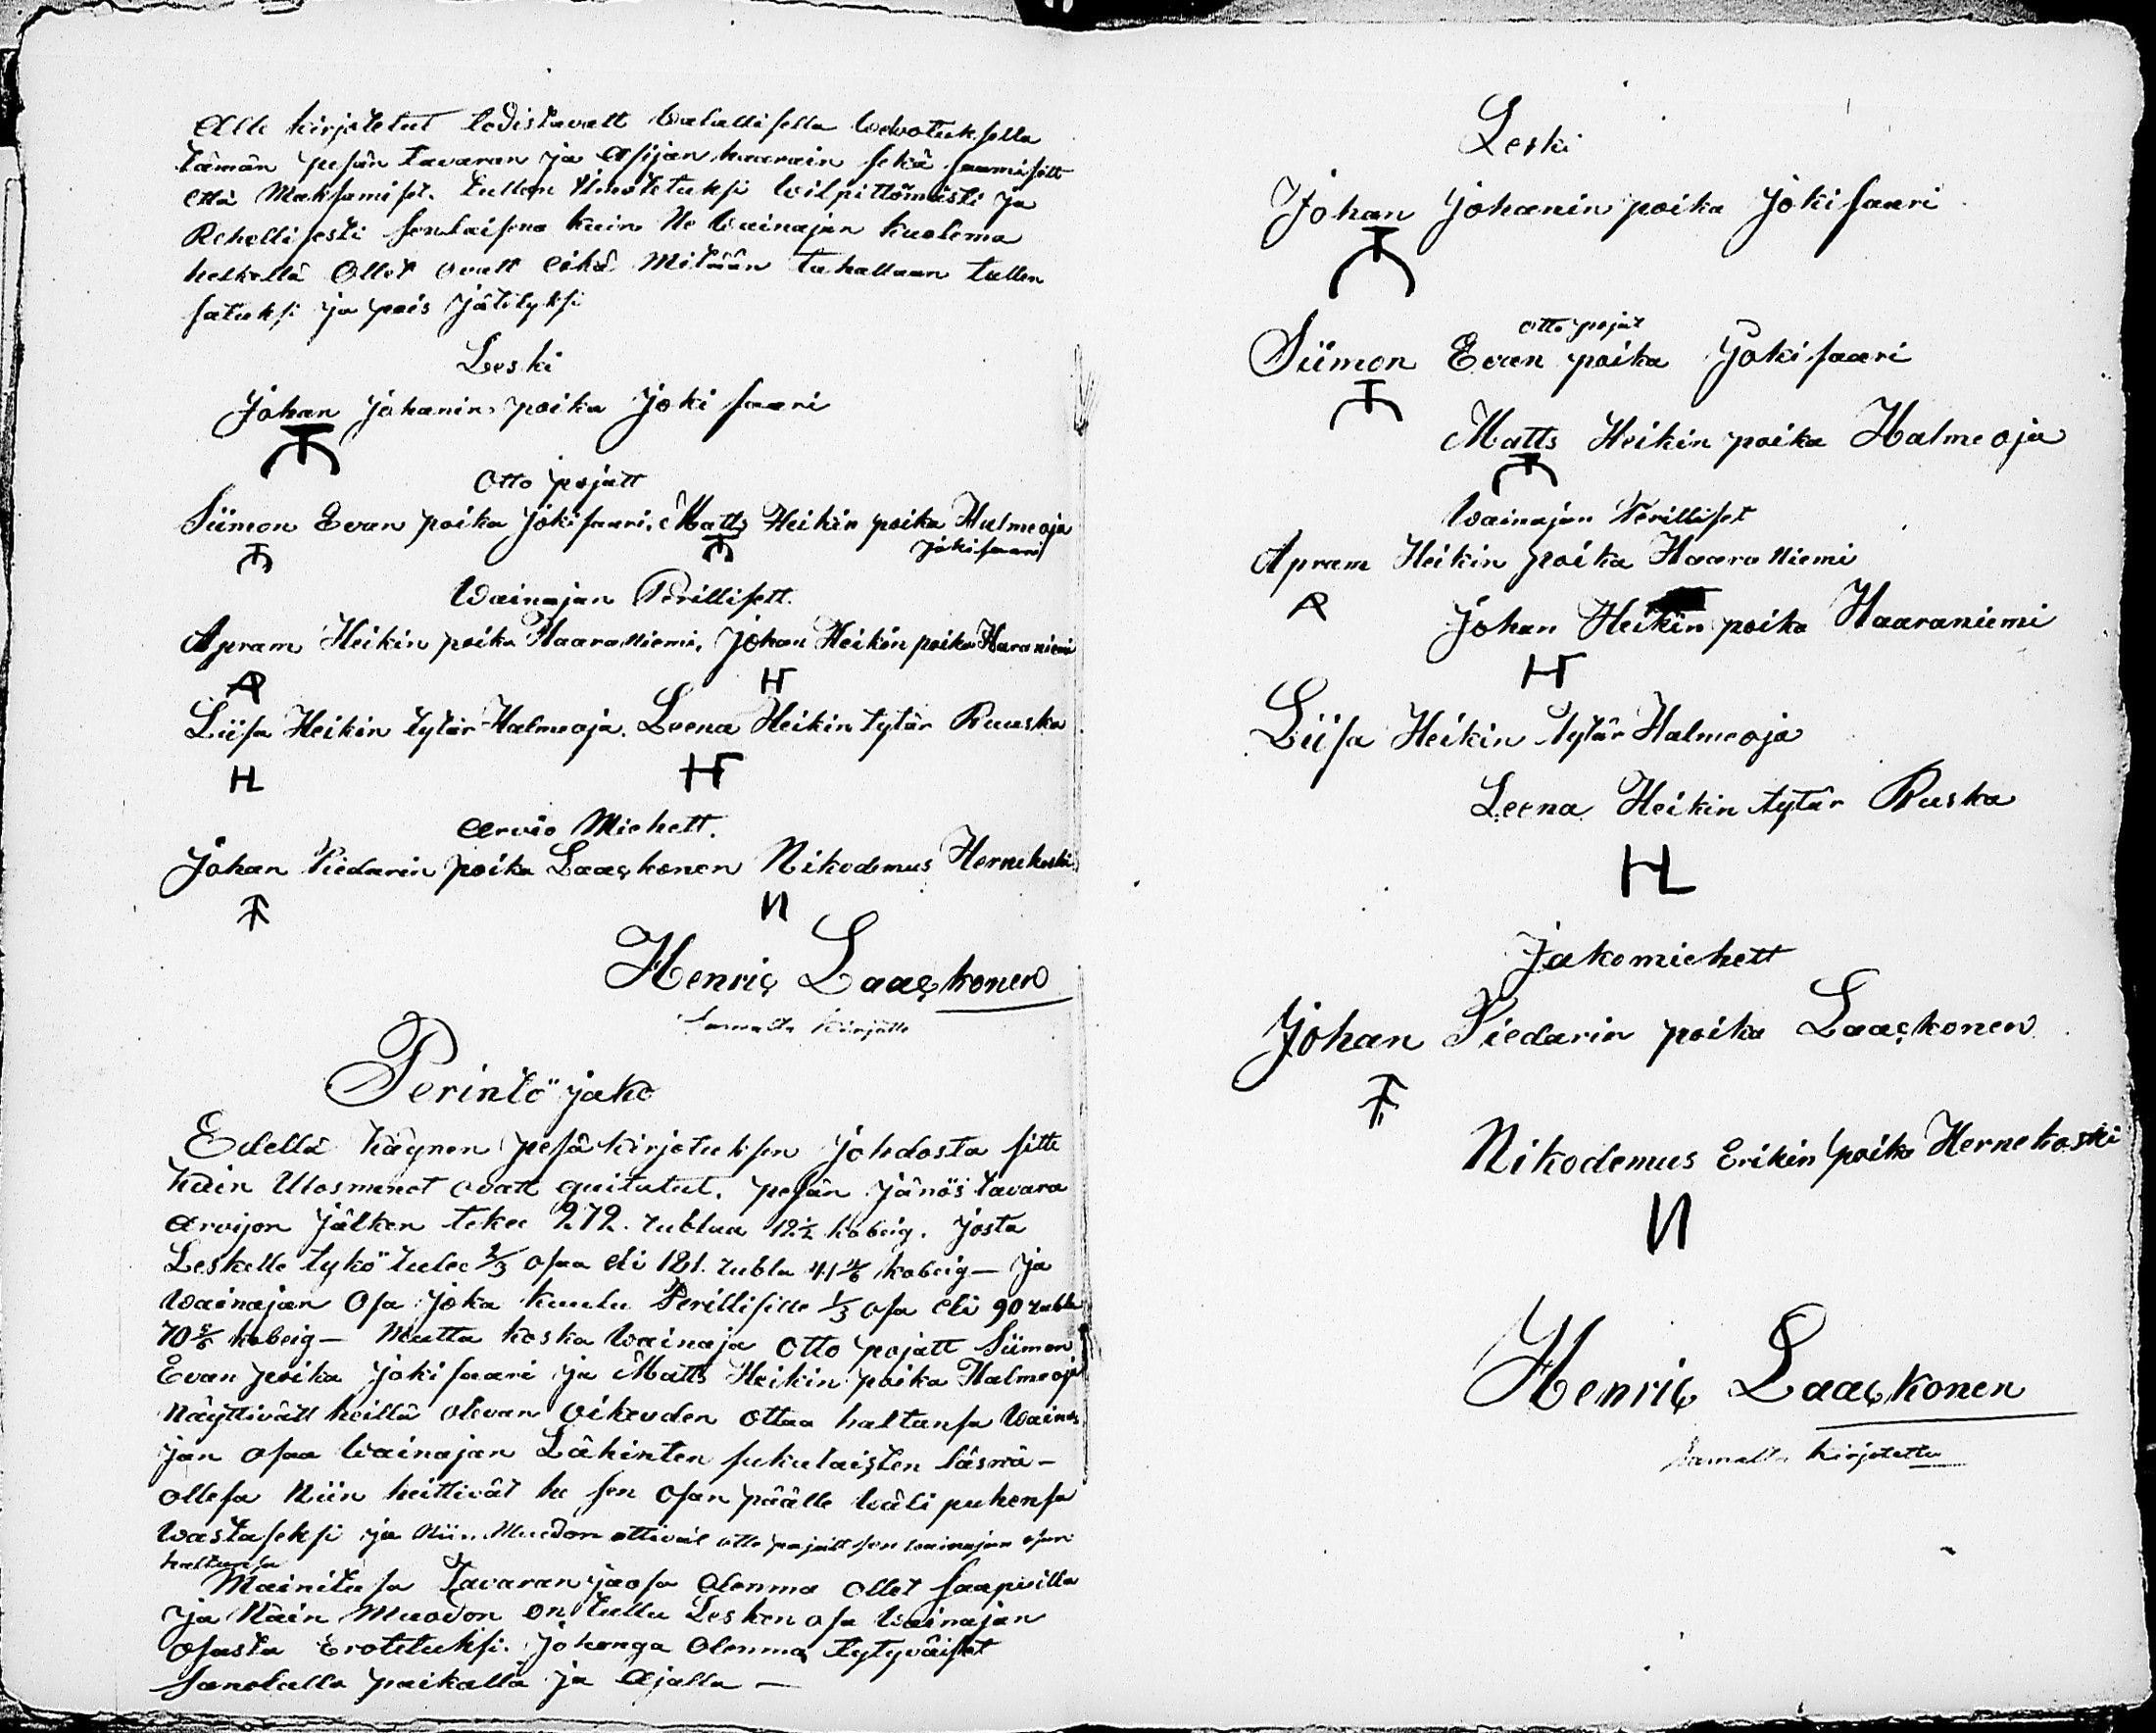 Alle kirjotetut todistavatt walallisella welvotuksella
tämän pesän tavaran ja asijan haarain sekä saamisett
että Maksamiset. tullen ilmotetuksi wilpittömästi ja
Rehellisesti senlaisena kuin Ne wainajan kuolema
hetkellä Ollet ovatt eikä Mitään tahallaan tullen
satuksi ja pois jätetyksi
Leski
Johan Johanin poika Jokisaari
Otto pojatt
Siimon Evan poika Jokisaari. Matts Heikin poika Halmeoja
Jokisaari
Wainajan Perillisett.
Apram Heikin poika Haaraniemi, Johan Heikin poika Haraniemi
A H
Liisa Heikin tytär Halmeoja. Leena Heikin tytär Ruuska
HL H
Arvio Miehett.
Johan Piedarin poika Laaçkonen Nikodemus Hernekoski
N
Henriç Laaçkonen
Samalla kirjotta
Perintö jako
Edellä käynen pesäkirjotuksen johdosta sitte
kuin Ulosmenot ovatt quitatut. pesän jänös tavara
arvijon jälken tekee 272. rublaa 12½ kobeig. josta
Leskelle tykö tulee ⅔ osaa eli 181. rubla 41 4/6 kobeig— ja
wainajan Osa joka kuulu Perillisille ⅓ osa eli 90 rubla
70 5/6 kobeig— Mutta koska wainaja otto pojatt Siimon
Evan poika Jokisaari ja Matts Heikin poika Halmeoja
Näyttivätt heillä olevan oikeuden ottaa haltunsa waina
jan osaa wainajan Lähinten sukulaisten läsnä-
ollesa Niin heittivät he sen Osan päälle wäli puhensa
wastaseksi ja Niin Muodon ottivat otto pojatt sen wainajan osan
haltunsa
Mainitusa Tavaran jaosa Olenma ollet saapuvilla
ja Näin Muodon on tullu Lesken osa wainajan
Osasta Erotetuksi. johonga Olenma tytyväiset
Sanotulla paikalla ja Ajalla —
Leski
Johan Johanin poika Jokisaari
otto pojat
Siimon Evan poika Jokisaari
Matts Heikin poika Halmeoja
Wainajan Perilliset
Apram Heikin poika Haaraniemi
A
Johan Heikin poika Haaraniemi
H
Liisa Heikin tytär Halmeoja
Leena Heikin tytär Ruska
HL
Jakomiehett
Johan Piedarin poika Laaçkonen
Nikodemus Erikin poika Hernekoski
N
Henriç Laaçkonen
Samalla kirjotettu